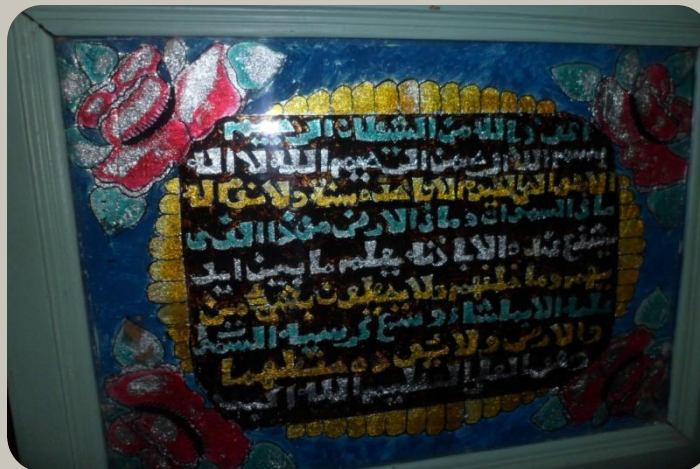 اعوذ بالله من الشطان الرجيم
بسم الله الرحمن الرحيم الله لا اله
الا هو الحي القيوم لا تاخذه سنة ولا نوم له
ما في السموات وما في الارض من ذا الذي
يشفع عنده الا باذنه يعلم ما بين ايد
يهم وما خلفهم ولا يحيطون بشئ من
علمه الا بما شاء وسع كرسيه السموت
والارض ولا حفظهما
وهو العلي العظيم الله اكبر